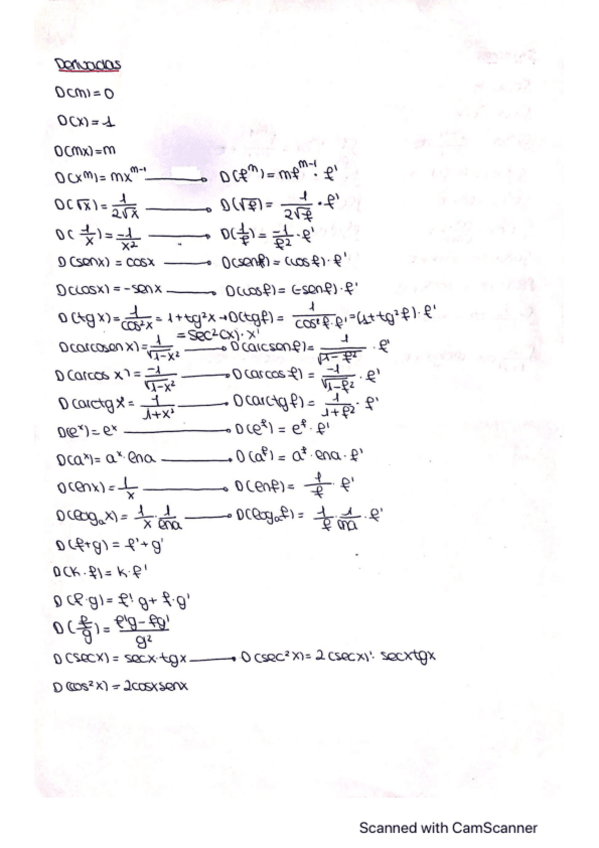 Derivadas
D(m)=0
D(x)=1
D(mx)=m
D(x^m)=mx^{m-1} → D(f^m)=mf^{m-1}·f'
D(√x)=1/(2√x) → D(√f)=1/(2√f)·f'
D(1/x)=-1/x² → D(1/f)=-1/f²·f'
D(senx)=cosx → D(senf)=(cosf)·f'
D(cosx)=-senx → D(cosf)=(-senf)·f'
D(tgx)=1/cos²x=1+tg²x→D(tgf)=1/cos²f·f'=(1+tg²f)·f'
=sec²(x)·x'
D(arcosenx)=1/√(1-x²) → D(arcsenf)=1/√(1-f²)·f'
D(arcosx)=-1/√(1-x²) → D(arcosf)=-1/√(1-f²)·f'
D(arctgx=1/(1+x²) → D(arctgf)=1/(1+f²)·f'
D(e^x)=e^x → D(e^f)=e^f·f'
D(a^x)=a^x·lna → D(a^f)=a^f·lna·f'
D(lnx)=1/x → D(lnf)=1/f·f'
D(logₐx)=1/x·1/lna → D(logₐf)=1/f·1/lna·f'
D(f+g)=f'+g'
D(k·f)=k·f'
D(f·g)=f'g+f·g'
D(f/g)=(f'g-fg')/g²
D(secx)=secx·tgx → D(sec²x)=2(secx)'·secxtgx
D(cos²x)=2cosxsenx
Scanned with CamScanner